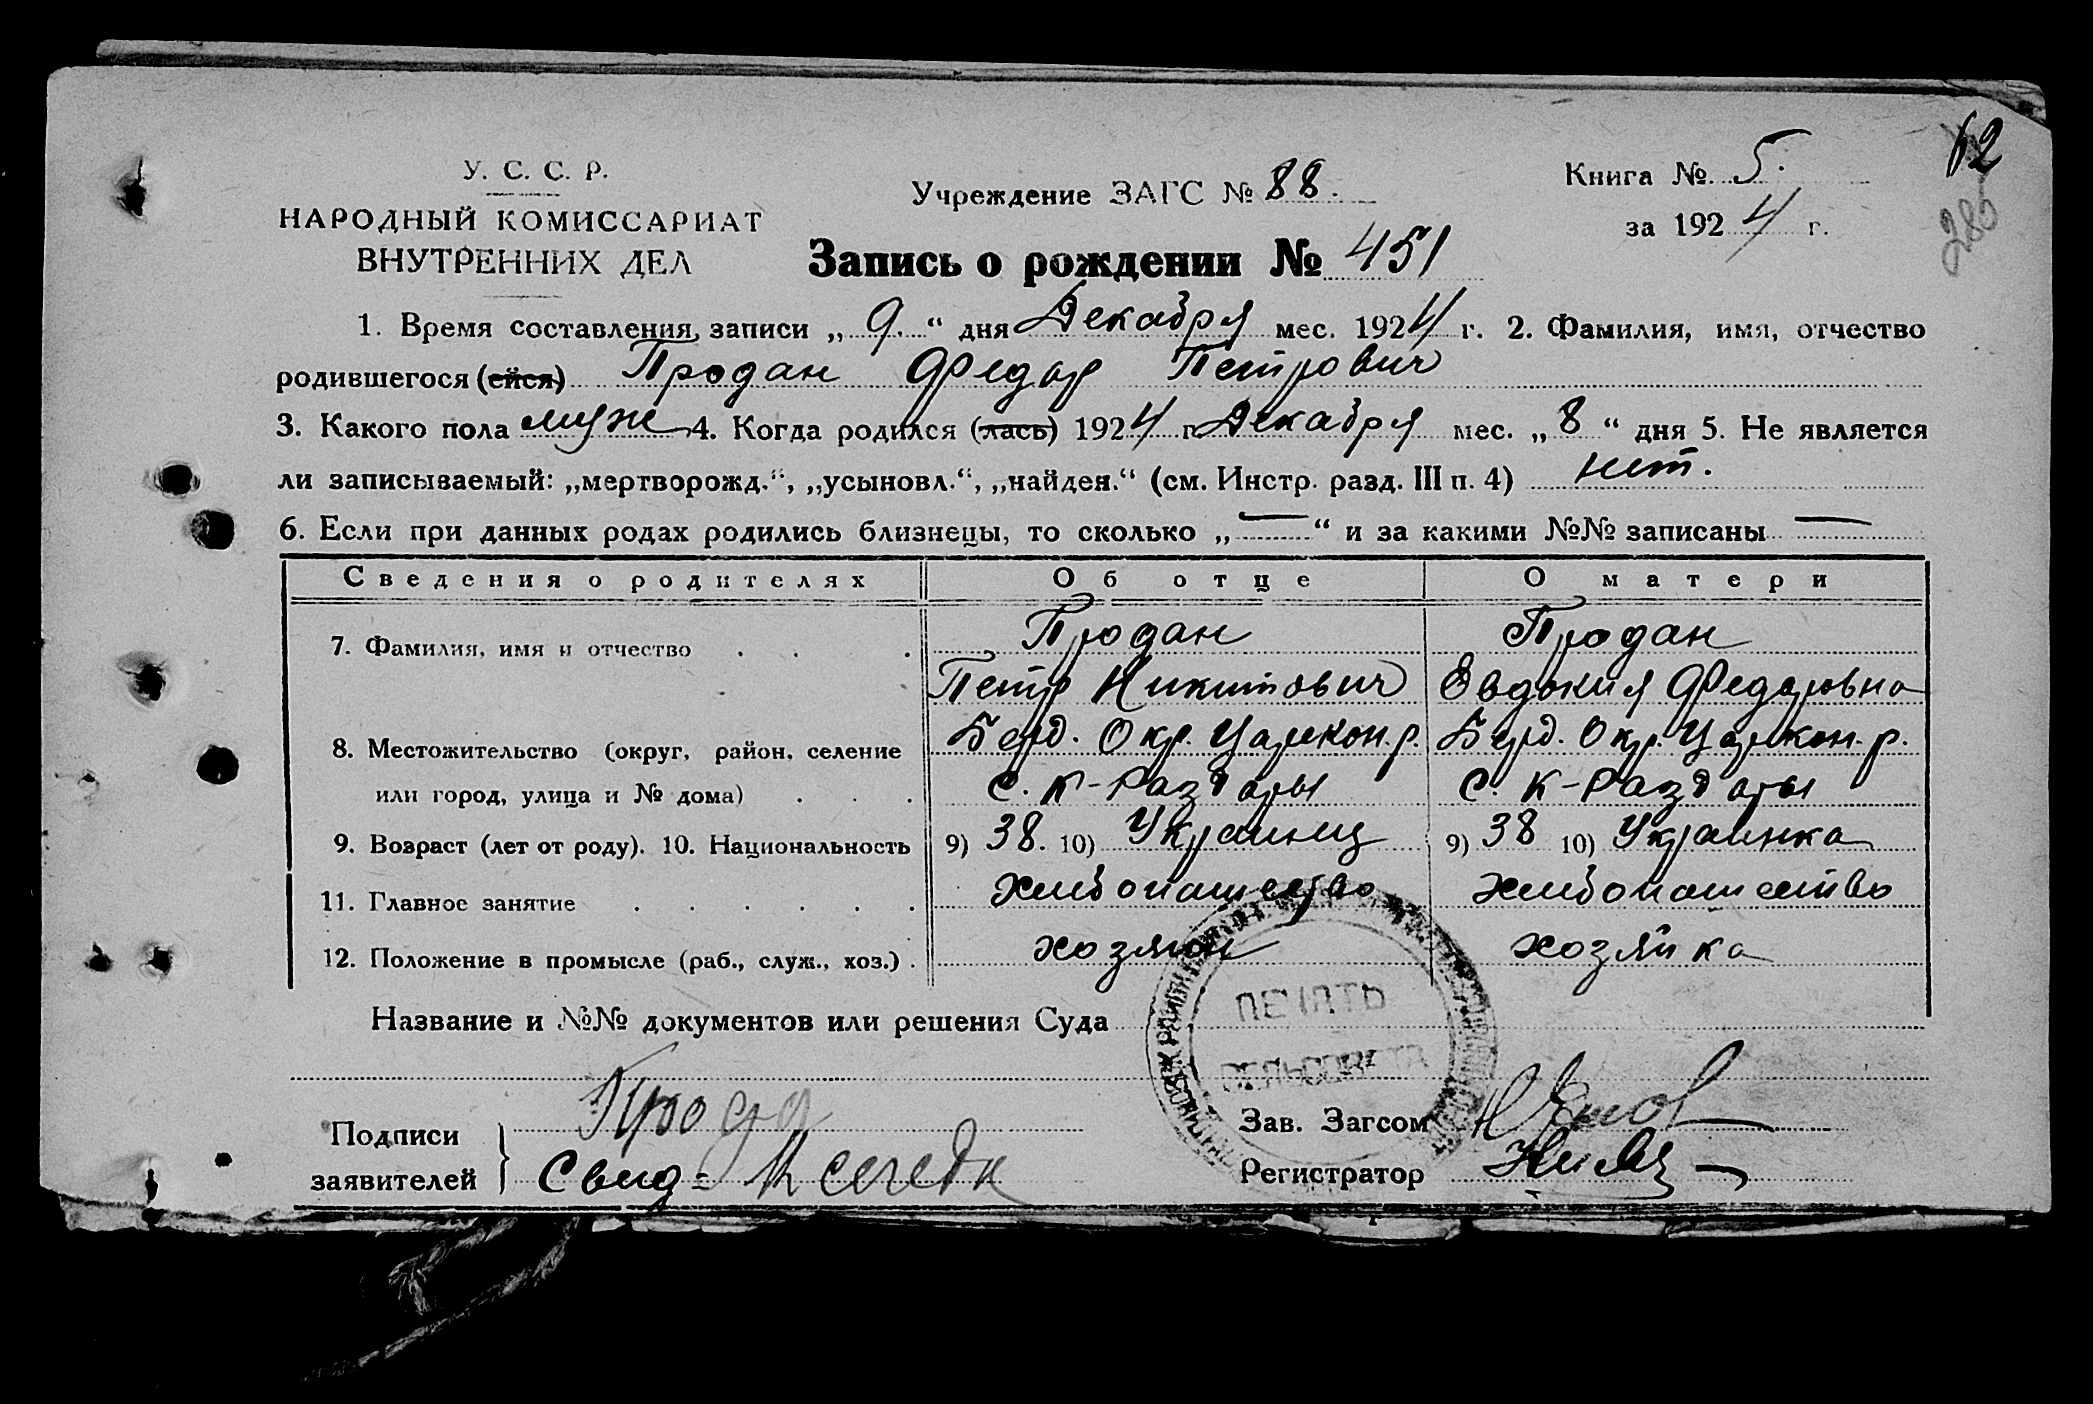 62
280
У. С. С. Р.
НАРОДНЫЙ КОМИССАРИАТ
ВНУТРЕННИХ ДЕЛ
Учреждение ЗАГС № 88.
Книга № 5.
за 1924 г.
Запись о рождении № 451
1. Время составления записи „9.“ дня Декабря мес. 1924 г. 2. Фамилия, имя, отчество
родившегося (ейся) Продан Федор Петрович
3. Какого пола муж 4. Когда родился (лась) 1924 г. Декабря мес. „8“ дня 5. Не является
ли записываемый: „мертворожд.“, „усыновл.“, „найден.“ (см. Инстр. разд. III п. 4) нет.
6. Если при данных родах родились близнецы, то сколько „—“ и за какими №№ записаны —
Сведения о родителях Об отце О матери
7. Фамилия, имя и отчество . . . Продан Продан
Петр Никитович Евдокия Федоровна
8. Местожительство (округ, район, селение Берд. Окр. Царекон. р. Берд. Окр. Царекон. р.
или город, улица и № дома) . . . С. К-Раздоры С. К-Раздоры
9. Возраст (лет от роду). 10. Национальность 9) 38. 10) Украинец 9) 38 10) Украинка
11. Главное занятие . . . . . . Хлебопашество Хлебопашество
12. Положение в промысле (раб., служ., хоз.) . хозяин хозяйка
Название и №№ документов или решения Суда
ПЕЧАТЬ
СЕЛЬСОВЕТА
Подписи
заявителей
Прода
Свид-
Зав. Загсом
Регистратор